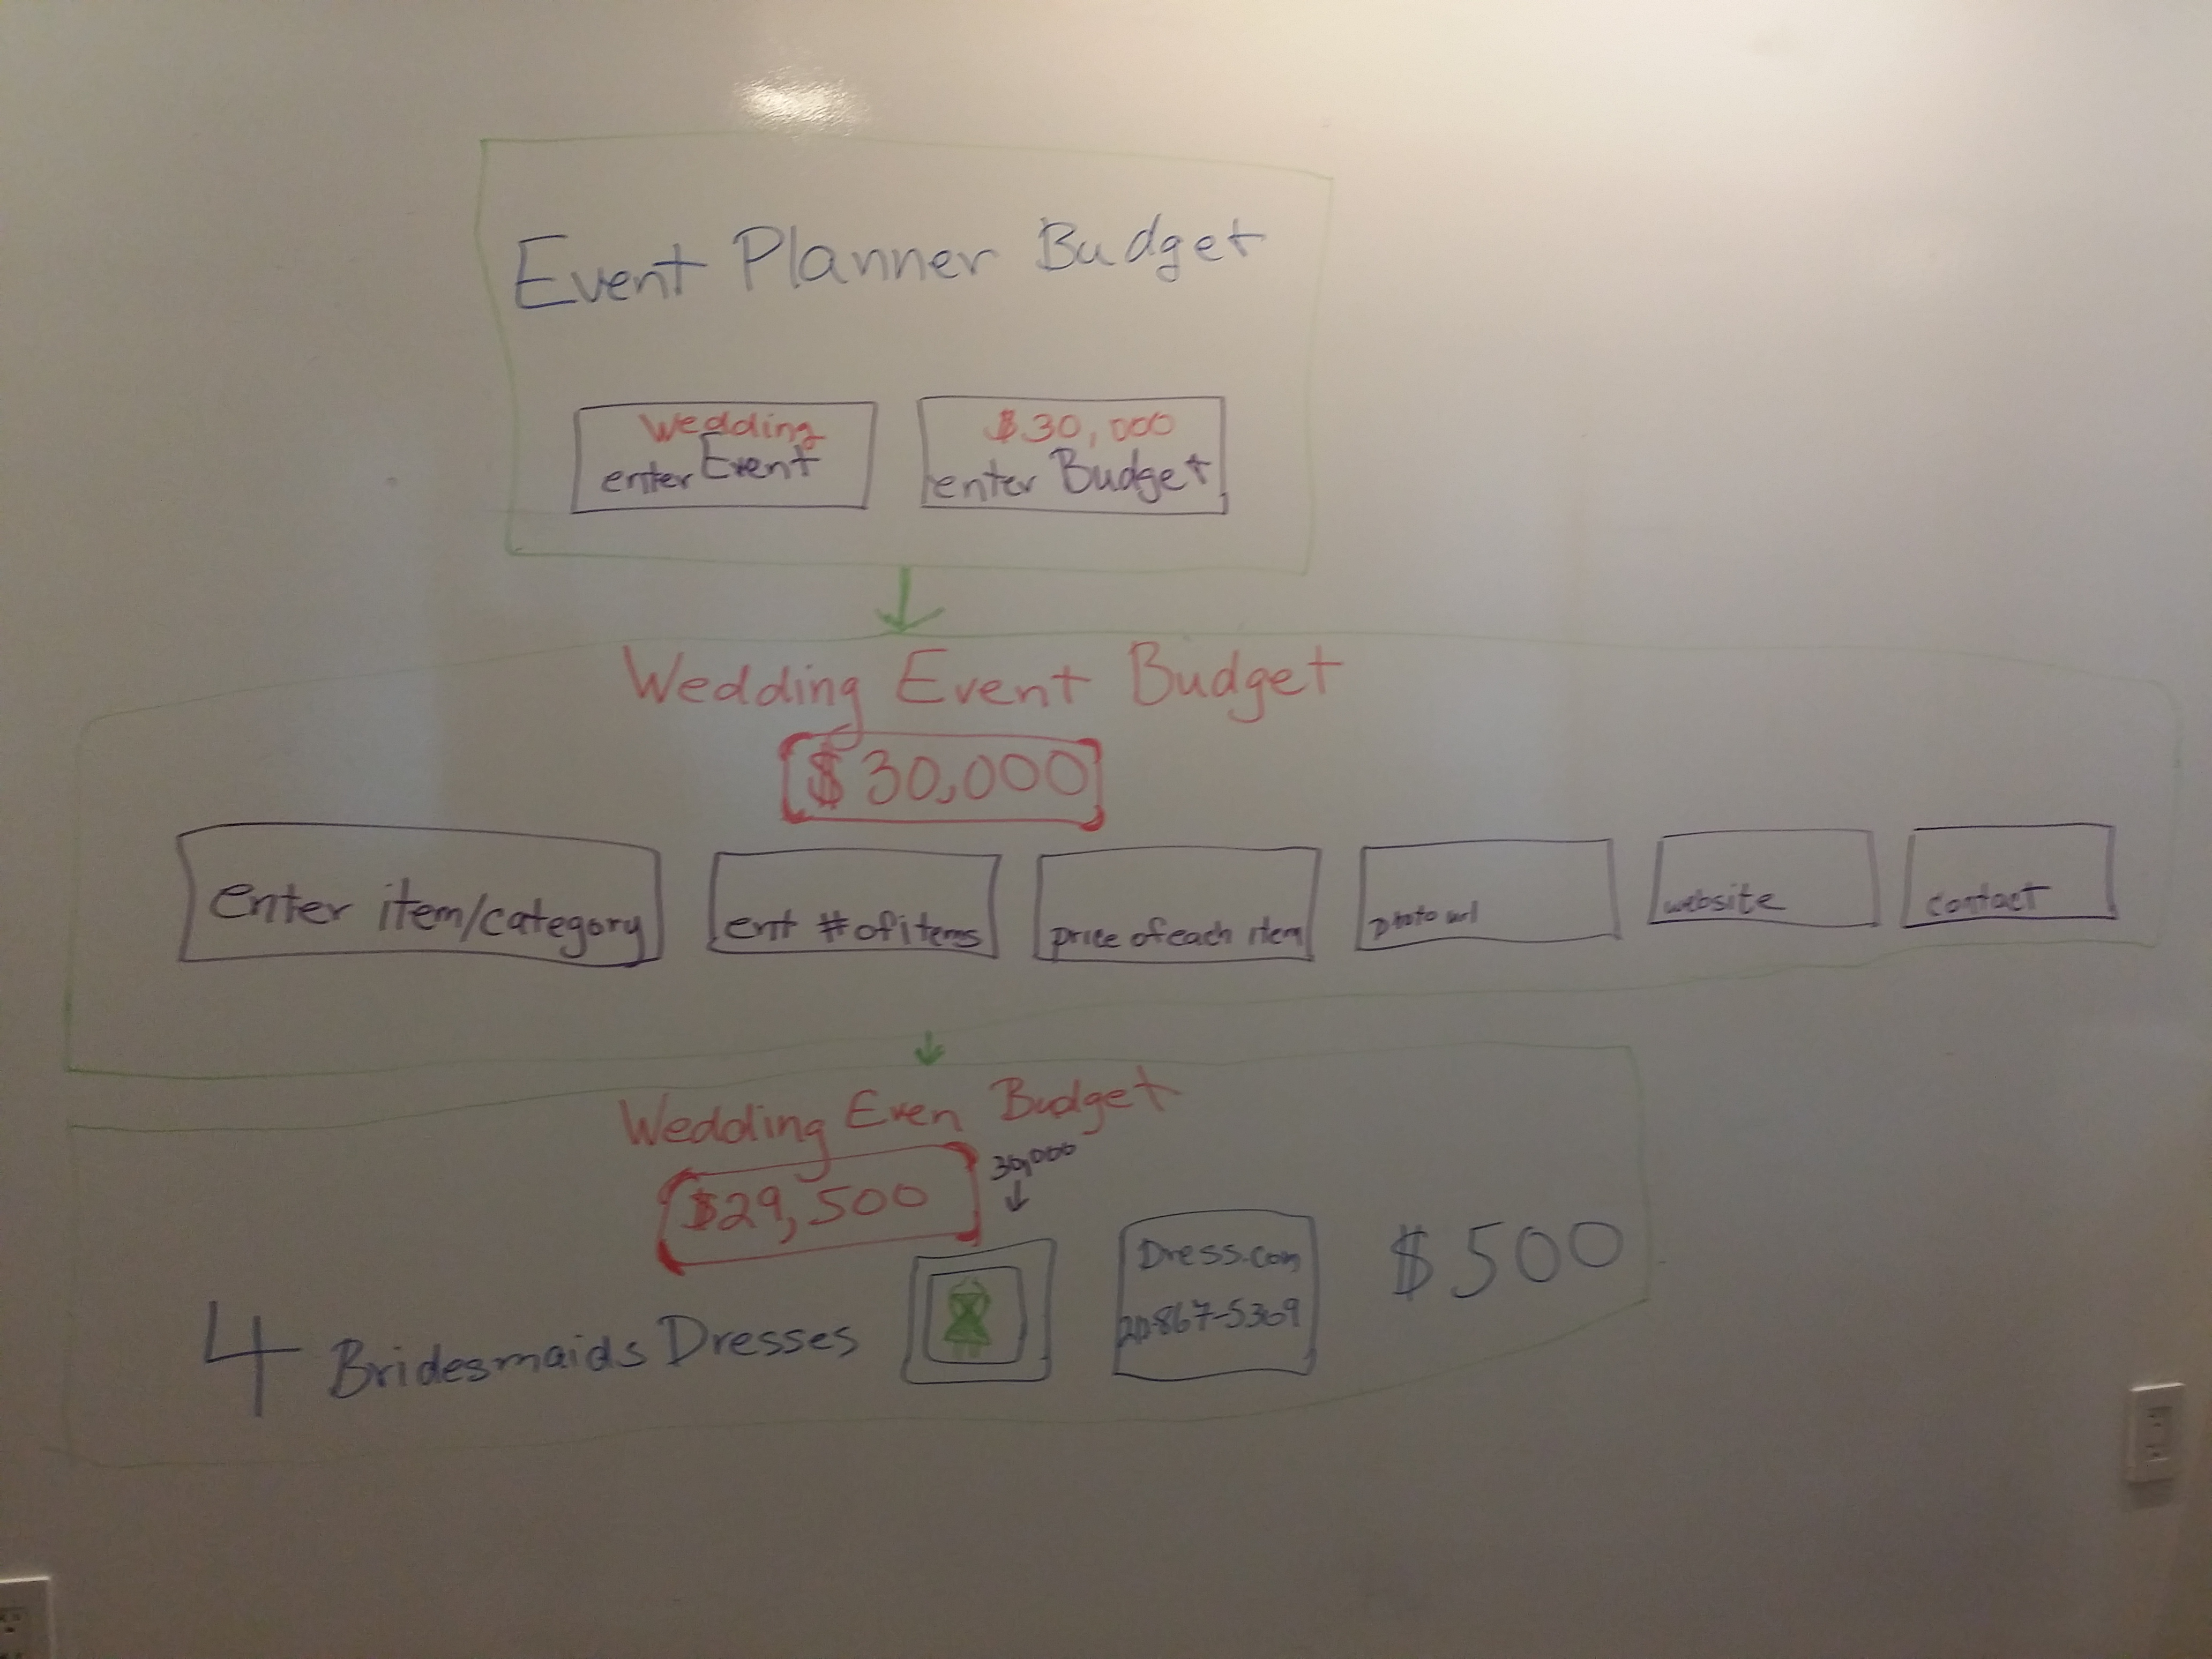 Event Planner Budget
Wedding
enter Event
$30,000
enter Budget
Wedding Event Budget
$30,000
enter item/category
ent # of items
price of each item
photo url
website
contact
Wedding Even Budget
$29,500
30,000
4 Bridesmaids Dresses
Dress.com
867-5309
$500